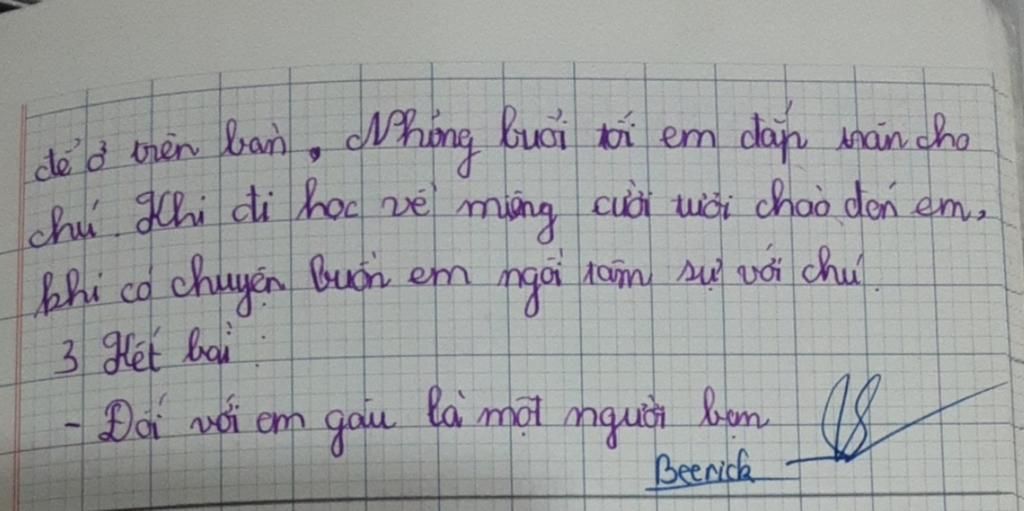 để ở trên bàn. Nhõng buổi tối em đắp chăn cho
chú. Khi đi học về miệng cười tười chào đón em,
khi có chuyện buồn em ngồi tâm sự với chú.
3 Kết bài:
- Đối với em gấu là một người bạn
Beerick